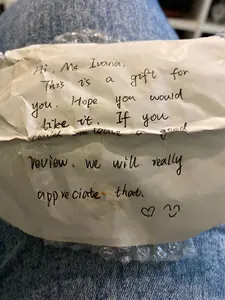 Hi, Ms Ivana.
This is a gift for
you. Hope you would
like it. If you
could leave a good
review. we will really
appreciate that.